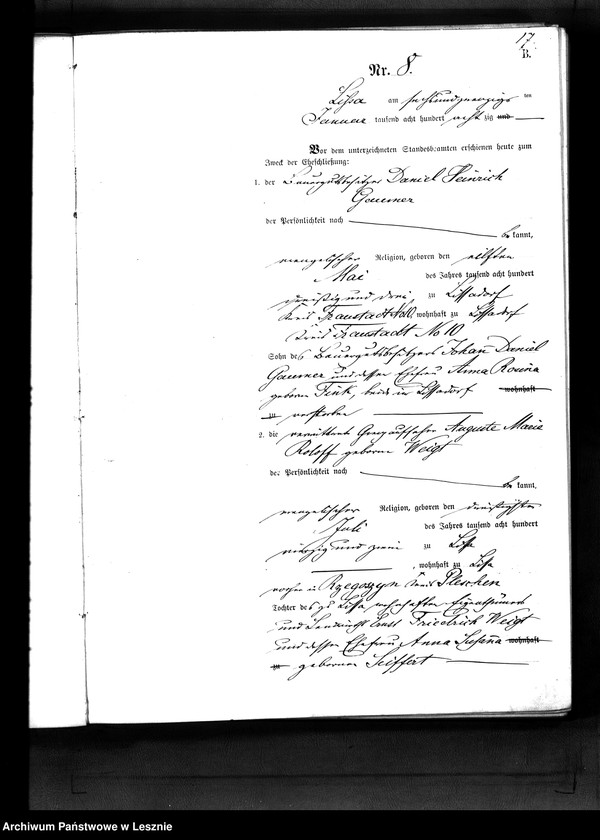 17.
B.
Nr. 8.
Lissa am sechsundzwanzigs ten
Januar tausend acht hundert acht zig und
Vor dem unterzeichneten Standesbeamten erschienen heute zum
Zweck der Eheschließung:
1. der Bauergutsbesitzer Daniel Heinrich
Gaumer
der Persönlichkeit nach
be kannt,
evangelischer Religion, geboren den eilften
Mai des Jahres tausend acht hundert
dreißig und drei zu Lissadorf
Kreis Fraustadt No 10 wohnhaft zu Lissadorf
Kreis Fraustadt No 10
Sohn des Bauergutsbesitzers Johann Daniel
Gaumer und dessen Ehefrau Anna Rosina
geborne Fink, beide in Lissadorf wohnhaft
zu verstorben
2. die Auguste Marie
Roloff geborne Weigt
der Persönlichkeit nach
be kannt,
evangelischer Religion, geboren den dreißigsten
Juli des Jahres tausend acht hundert
vierzig und zwei zu Lissa
, wohnhaft zu Lissa
vorher in Kreis Pleschen
Tochter des zu Lissa wohnhaften Eigenthümers
und Ernst Friedrich Weigt
und dessen Ehefrau Anna Susanna wohnhaft
zu geborene Seiffert
Archiwum Państwowe w Lesznie